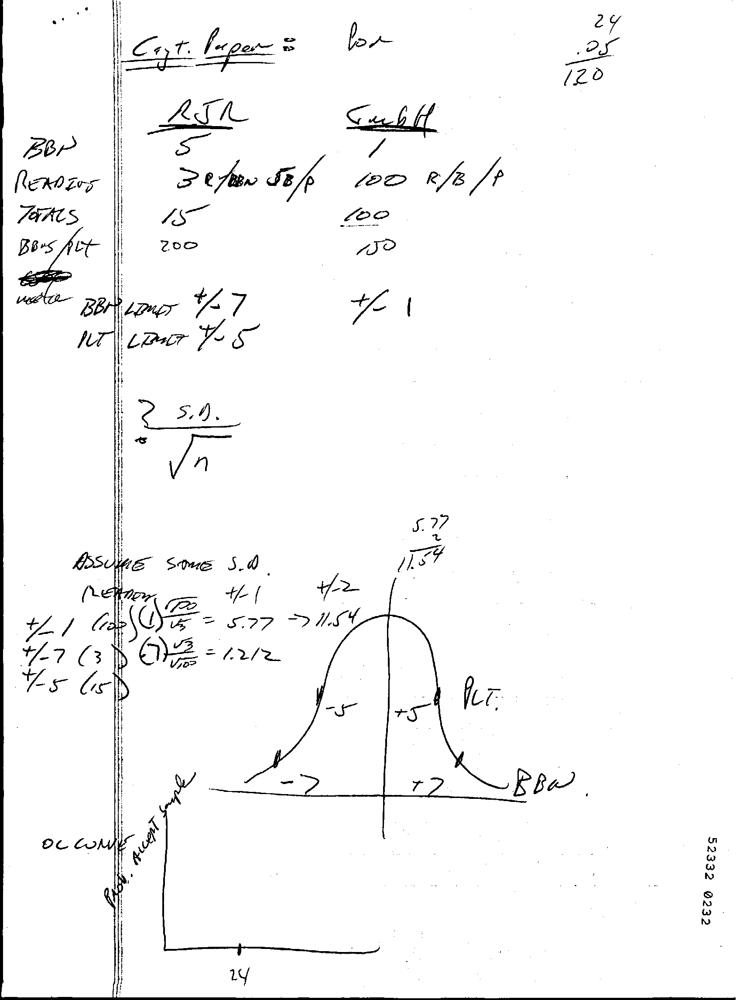 24
Cigt. Paper : Por .05
120
RJR GmbH
BBN 5 1
READING 3 R/BBN 5B/P 100 R/B/P
TOTALS 15 100
BBNS/PLT 200 150
BBN LIMIT +/- 7 +/- 1
PLT LIMIT +/- 5
S.D.
√n
5.77
2
11.54
ASSUME SOME S.D.
READING +/-1 +/-2
+/- 1 (100) (1) √100/√3 = 5.77 → 11.54
+/- 7 (3) (7) √3/√100 = 1.212
+/- 5 (15)
-5 +5 PLT.
-7 +7 BBN.
OC CURVE
PROB. ACCEPT sample
24
52332 0232